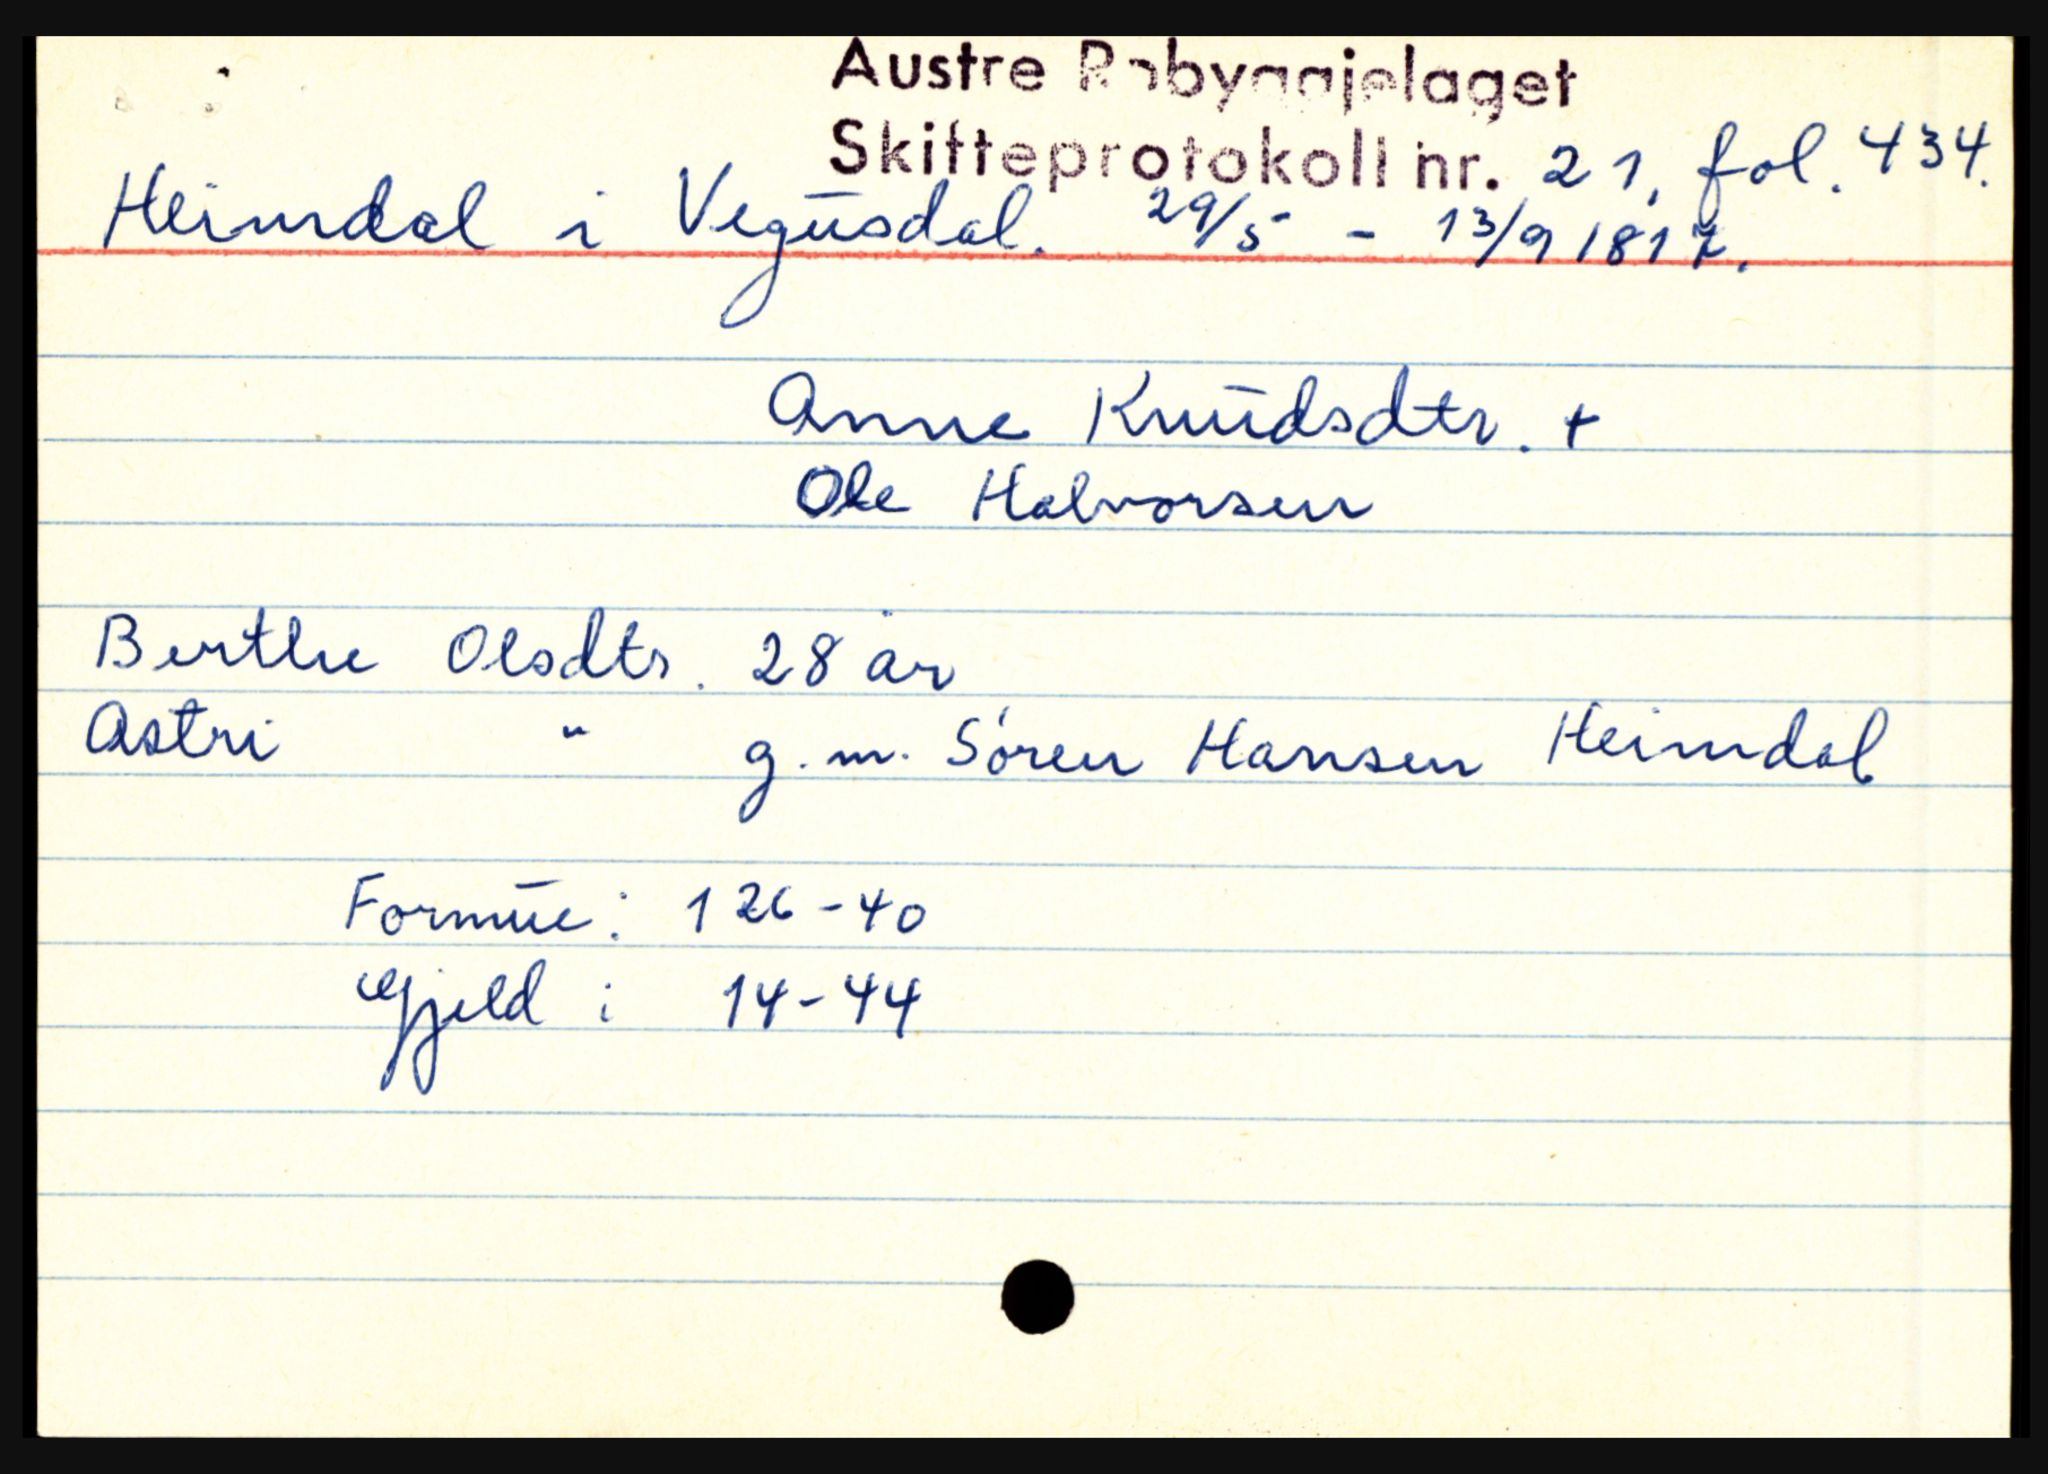 Austre Råbyggjelaget
Skifteprotokoll nr. 21, fol. 434.
Heimdal i Vegusdal. 29/5 - 13/9 1817.
Anne Knudsdtr. +
Ole Halvorsen
Berthe Olsdtr. 28 år
Astri " g.m. Sören Hansen Heimdal
Formue: 126-40
Gjeld: 14-44